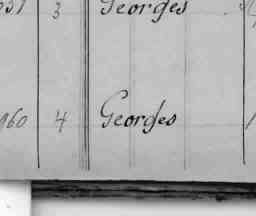 3 Georges
960 4 Georges